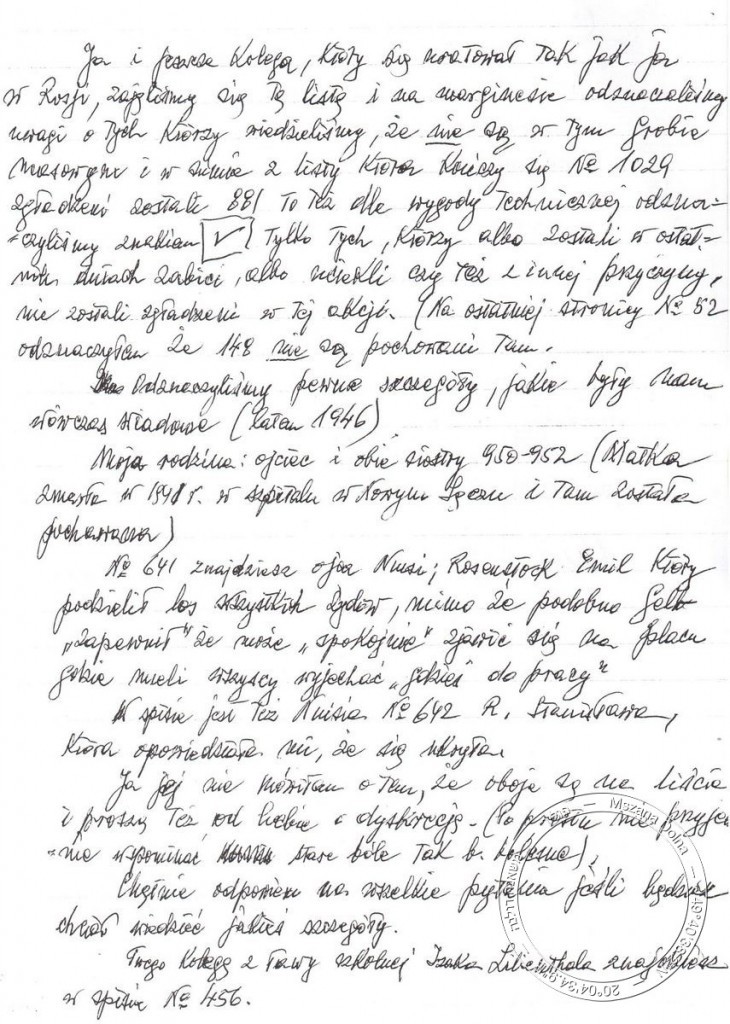 Ja i jeszcze Kolega, Który się uratował Tak jak ja
w Rosji, zajęliśmy się Tą listą i na marginesie odznaczaliśmy
uwagi o Tych Którzy wiedzieliśmy, że nie są w Tym grobie
masowym i w sumie z listy Która Kończy się № 1029
zgładzeni zostali 881 To Też dla wygody Technicznej odzna=
=czyliśmy znakiem V Tylko Tych, Którzy albo zostali w ostat=
nich dniach zabici, albo uciekli czy Też z innej przyczyny,
nie zostali zgładzeni w Tej akcji. (Na ostatniej stronicy № 52
odznaczyłem że 148 nie są pochowani Tam.
Odznaczyliśmy pewne szczegóły, jakie były nam
wówczas wiadome (latem 1946)
Moja rodzina: ojciec i obie siostry 950-952 (Matka
zmarła w 1941 r. w szpitalu w Nowym Sączu i Tam została
pochowana)
№ 641 znajdziesz ojca Nusi; Rosenstock Emil Który
podzielił los wszystkich Żydów, mimo że podobno Gelb
„zapewnił" że może „spokojnie" zjawić się na placu
gdzie mieli wszyscy wyjechać „gdzieś do pracy"
W spisie jest Też Nusia № 642 R. Stanisława,
Która opowiedziała mi, że się ukryła.
Ja jej nie mówiłam o Tem, że oboje są na liście
i proszę Też od Ciebie o dyskrecję. (Po prostu nie przyjem
=nie wspominać stare bóle Tak b. bolesne),
Chętnie odpowiem na wszelkie pytania jeśli będziesz
chciał wiedzieć jakieś szczegóły.
Twego Kolegę z ławy szkolnej Izaka Lilienthala znajdziesz
w spisie № 456.
Mszana Dolna
49°40'33
20°04'34.9"